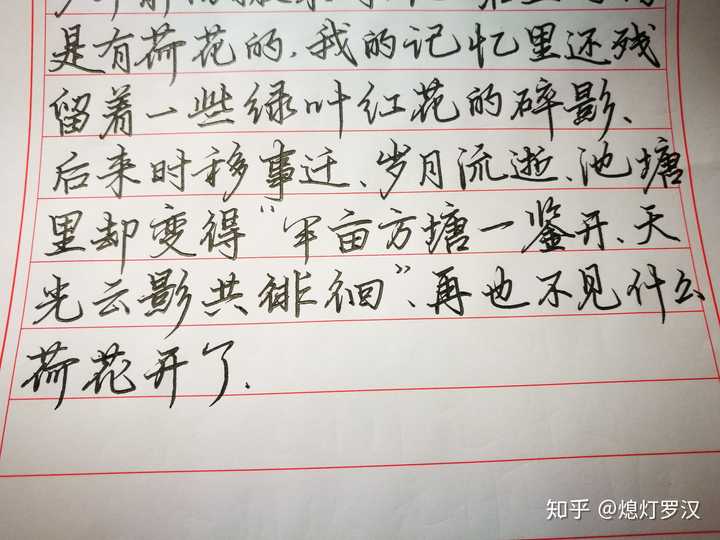 是有荷花的,我的记忆里还残
留着一些绿叶红花的碎影、
后来时移事迁、岁月流逝、池塘
里却变得“半亩方塘一鉴开、天
光云影共徘徊”、再也不见什么
荷花开了.
知乎 @熄灯罗汉